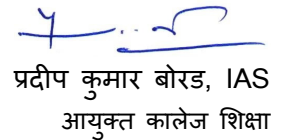 प्रदीप कुमार बोरड, IAS
आयुक्त कालेज शिक्षा